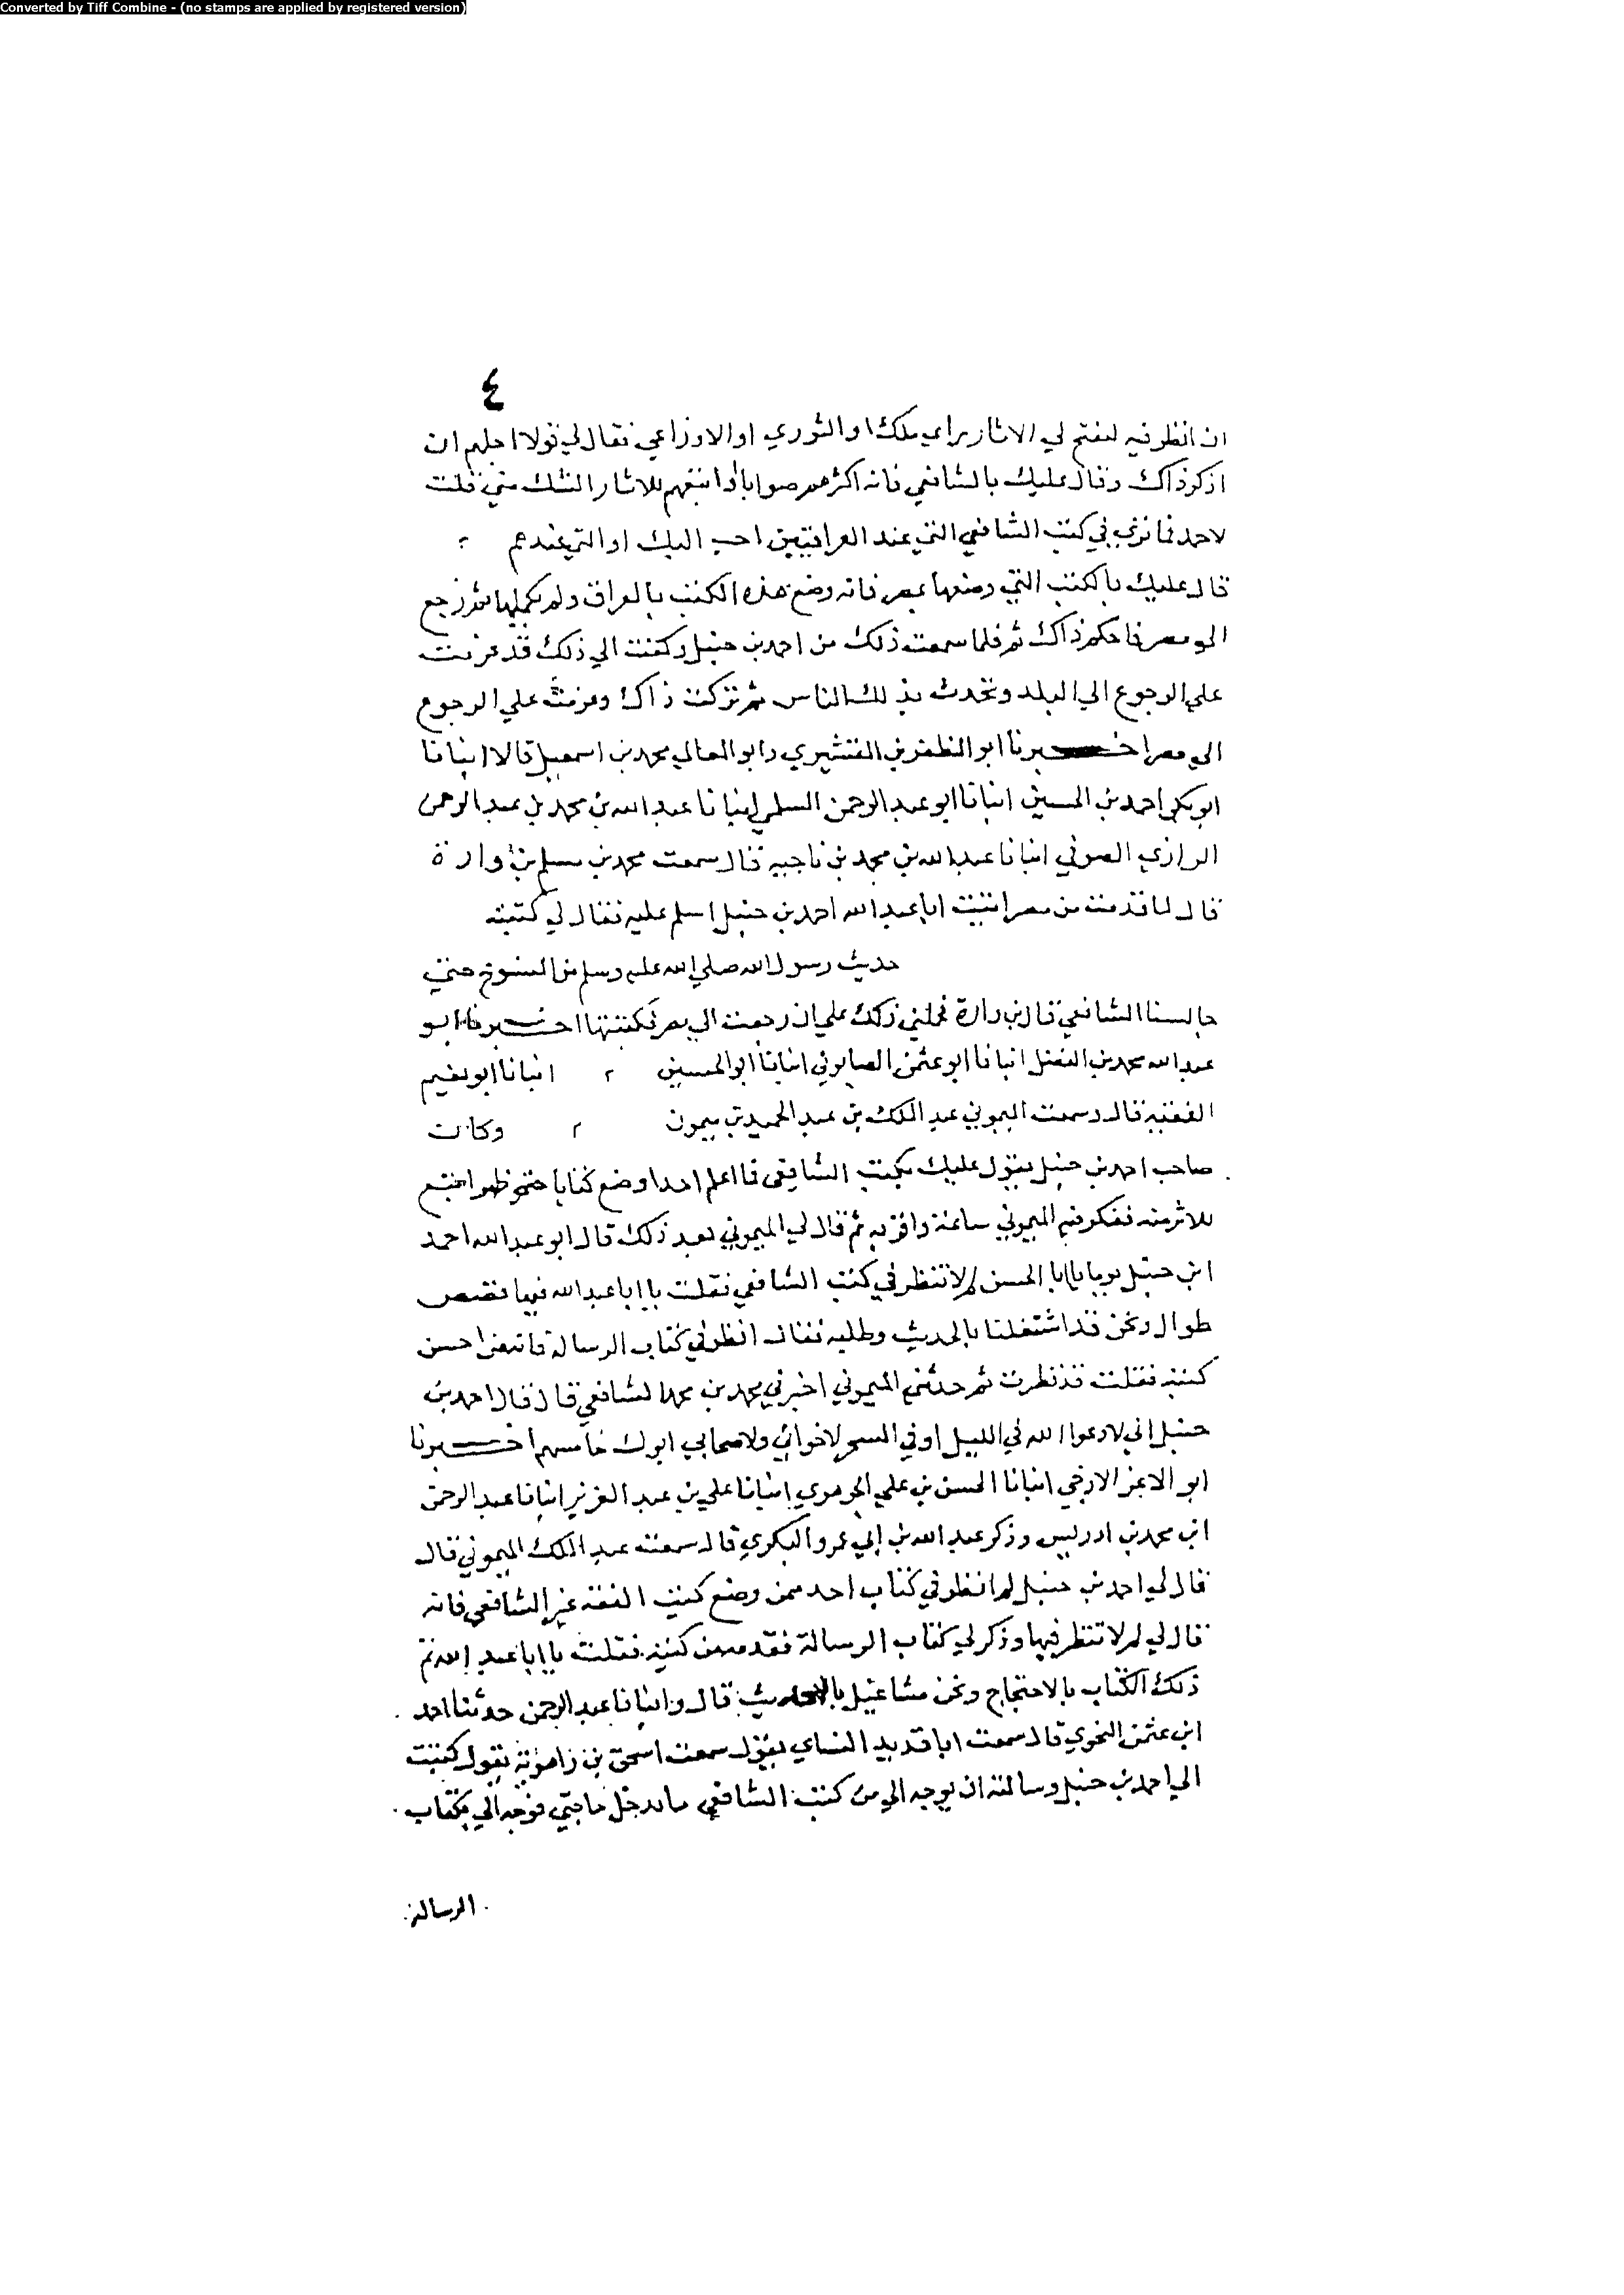 Converted by Tiff Combine - (no stamps are applied by registered version)
٤
ان انظر فيه ليفتح لي الاثار براي ملك او الثوري او الاوزاعي فقال لي قولا اجلهم ان
اذكر ذاك وقال عليك بالشافعي فانه اكثرهم صوابا واتبعهم للاثار الشك مني قلت
لاحمد فما ترى في كتب الشافعي التي عند العراقيين احب اليك او التي عندهم
قال عليك بالكتب التي وضعها بمصر فانه وضع هذه الكتب بالعراق ولم يحكمها ثم رجع
الى مصر فاحكم ذاك ثم فلما سمعت ذلك من احمد بن حنبل وكنت الي ذلك قد عزمت
علي الرجوع الي البلد وتحدث بذلك الناس ثم تركت ذاك وعزمت علي الرجوع
الي مصر اخبرنا ابو المظفر بن القشيري وابو المعالي محمد بن اسمعيل قالا انبانا
ابو بكر احمد بن الحسين انبانا ابو عبد الرحمن السلمي انبانا عبد الله بن محمد بن عبد الرحمن
الرازي الصوفي انبانا عبد الله بن محمد بن ناجيه قال سمعت محمد بن مسلم بن وارة
قال لما قدمت من مصر اتيت ابا عبد الله احمد بن حنبل اسلم عليه فقال لي كتبته
حديث رسول الله صلي الله عليه وسلم من المنسوخ حتي
جالسنا الشافعي قال بن وارة فحملني ذلك علي ان رجعت الي مصر فكتبتها اخبرنا ابو
عبد الله محمد بن الفضل انبانا ابو عثمن الصابوني انبانا ابو الحسين انبانا ابو نعيم
الفقيه قال وسمعت الميموني عبد الملك بن عبد الحميد بن ميمون وكان
صاحب احمد بن حنبل يقول عليك بكتب الشافعي فما اعلم احدا وضع كتابا حتي ظهر اتبع
للاثر منه ففكر فيه الميموني ساعة واقر به ثم قال لي الميموني بعد ذلك قال ابو عبد الله احمد
ابن حنبل يوما يا ابا الحسن لم لا تنظر في كتب الشافعي فقلت يا ابا عبد الله فيها قصص
طوال ونحن قد اشتغلنا بالحديث وطلبه فقال انظر في كتاب الرسالة فانه من احسن
كتبه فقلت قد نظرت ثم حدثني الميموني اخبرني محمد بن محمد الشافعي قال قال احمد بن
حنبل اني لادعوا الله في الليل او في السحر لاخواني ولاصحابي ابوك خامسهم اخبرنا
ابو الاعز الازجي انبانا الحسن بن علي الجوهري انبانا علي بن عبد العزيز انبانا عبد الرحمن
ابن محمد بن ادريس وذكر عبد الله بن ابي عمرو البكري قال سمعت عبد الملك الميموني قال
قال لي احمد بن حنبل لم انظر في كتاب احد ممن وضع كتب الفقه غير الشافعي فانه
قال لي لم لا تنظر فيها وذكر لي كتاب الرسالة فقدمه من كتبه فقلت يا ابا عبد الله تم
ذلك الكتاب بالاحتجاج ونحن مشاغيل بالحديث قال وانبانا عبد الرحمن حدثنا احمد
ابن عثمن النحوي قال سمعت ابا قديد النساي يقول سمعت اسحق بن راهويه يقول كتبت
الي احمد بن حنبل وسالته ان يوجه الي من كتب الشافعي ما يدخل حاجتي فوجه الي بكتاب
الرسالة